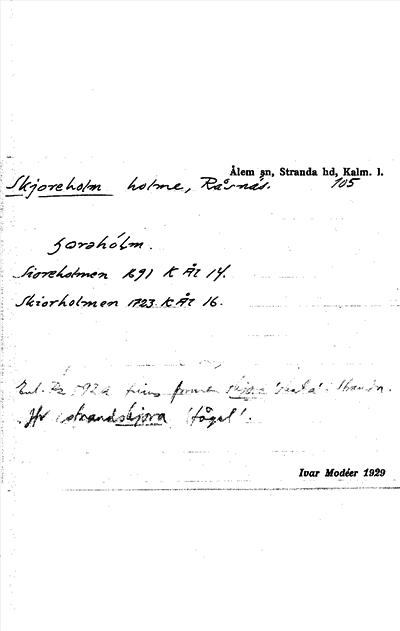 Ålem sn, Stranda hd, Kalm. l.
Skjoreholm holme, Råsnäs. 105
Sioreholmen 1691 K Äl 14.
Skiorholmen 1723 K Äl 16.
Enl. finns formen skjora
Jfr strandskjora 'fågel'.
Ivar Modéer 1929